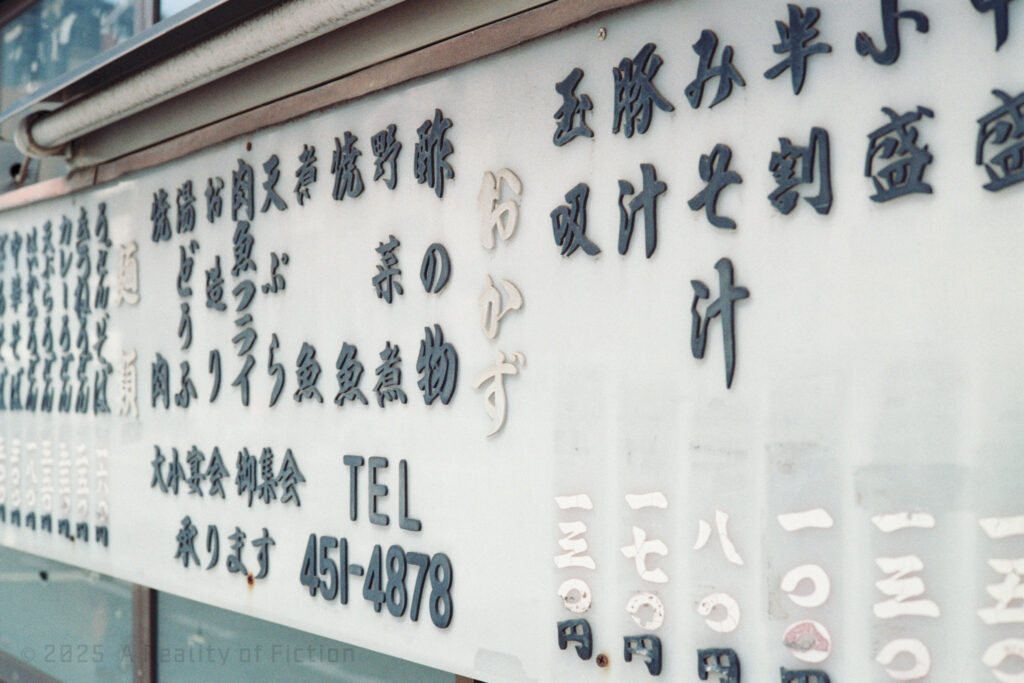 小盛 一三〇
半割 一〇〇円
みそ汁 八〇円
豚汁 一七〇円
玉吸 一三〇円
おかず
酢の物
野菜煮
焼魚
煮魚
天ぷら
肉魚フライ
お造り
湯どうふ
焼肉
大小宴会 御集会
承ります
TEL
451-4878
麺類
うどんそば
カレーうどん
© 2025 A Reality of Fiction